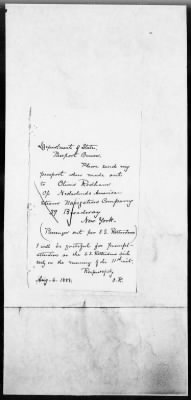 Department of State,
Passport Bureau.
Please send my
passport when made out
to Oliver Rodham
Of Nederlands American
Steam Navigation Company
39 Broadway
New York.
(Passenger out per S.S. Rotterdam
I will be grateful for prompt
attention as the S.S. Rotterdam sails
early on the morning of the 11th inst.
Respectfully
Aug. 6. 1888.